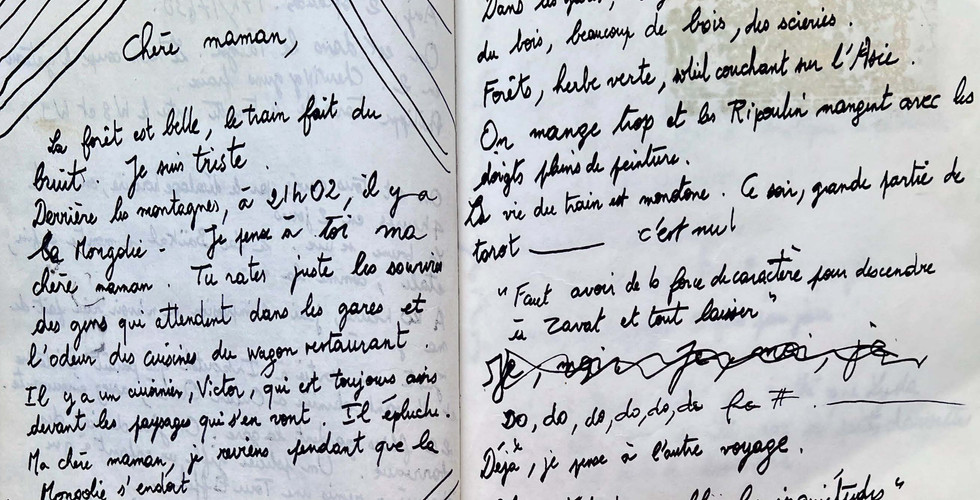 Chère maman,
La forêt est belle, le train fait du
bruit. Je suis triste.
Derrière les montagnes, à 21h02, il y a
la Mongolie - Je pense à toi ma
chère maman. Tu rates juste les sourires
des gens qui attendent dans les gares et
l'odeur des cuisines du wagon restaurant.
Il y a un cuisinier, Victor, qui est toujours assis
devant les paysages qui s'en vont. Il épluche.
Ma chère maman, je reviens pendant que la
Mongolie s'endort
Dans les
du bois, beaucoup de bois, des scieries.
Forêts, herbe verte, soleil couchant sur l'Asie.
On mange trop et les Ripoulin mangent avec les
doigts pleins de peinture.
La vie du train est monotone. Ce soir, grande partie de
tarot ——— c'est nul
"Faut avoir de la force de caractère pour descendre
à Zavat et tout laisser"
Do, do, do, do, do, do fa #.
Déjà, je pense à l'autre voyage.